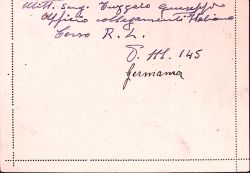 Mitt. Serg. Tuggolo Giuseppe
Ufficio collegamento Italiano
Corso R. L.
P. M. 145
Germania